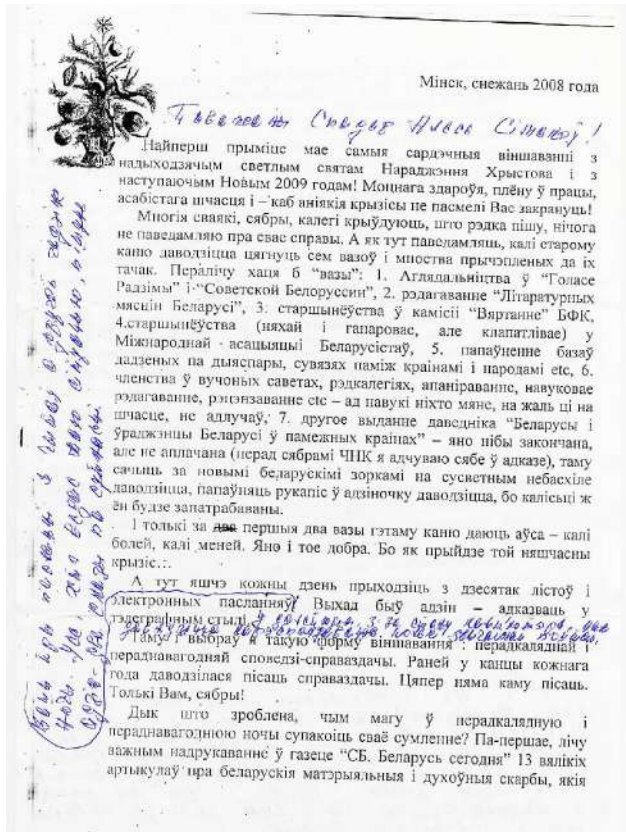 Мінск, снежань 2008 года
Паважаны Спадар Алесь !
Найперш прыміце мае самыя сардэчныя віншаванні з
надыходзячым светлым святам Нараджэння Хрыстова і з
наступаючым Новым 2009 годам! Моцнага здароўя, плёну ў працы,
асабістага шчасця і – каб аніякія крызісы не пасмелі Вас закрануць!
Многія сваякі, сябры, калегі крыўдуюць, што рэдка пішу, нічога
не паведамляю пра свае справы. А як тут паведамляць, калі старому
каню даводзіцца цягнуць сем вазоў і мноства прычэпленых да іх
тачак. Пералічу хаця б “вазы”: 1. Аглядальніцтва ў “Голасе
Радзімы” і “Советской Белоруссии”, 2. рэдагаванне “Літаратурных
мясцін Беларусі”, 3. старшынёўства ў камісіі “Вяртанне” БФК,
4.старшынёўства (няхай і ганаровае, але клапатлівае) у
Міжнароднай асацыяцыі Беларусістаў, 5. папаўненне базаў
дадзеных па дыяспары, сувязях паміж краінамі і народамі etc, 6.
членства ў вучоных саветах, рэдкалегіях, апаніраванне, навуковае
рэдагаванне, рэцэнзаванне etc – ад навукі ніхто мяне, на жаль ці на
шчасце, не адлучаў, 7. другое выданне даведніка “Беларусы і
ўраджэнцы Беларусі ў памежных краінах” – яно нібы закончана,
але не аплачана (перад сябрамі ЧНК я адчуваю сябе ў адказе), таму
сачыць за новымі беларускімі зоркамі на сусветным небасхіле
даводзіцца, папаўняць рукапіс ў адзіночку даводзіцца, бо калісьці ж
ён будзе запатрабаваны.
І толькі за два першыя два вазы гэтаму каню даюць аўса – калі
болей, калі меней. Яно і тое добра. Бо як прыйдзе той няшчасны
крызіс...
А тут яшчэ кожны дзень прыходзіць з дзесятак лістоў і
электронных пасланняў! Выхад быў адзін – адказваць у
тэлеграфным стылі.
Таму і выбраў я такую форму віншавання : перадкаляднай і
пераднавагодняй споведзі-справаздачы. Раней у канцы кожнага
года даводзілася пісаць справаздачы. Цяпер няма каму пісаць.
Толькі Вам, сябры!
Дык што зроблена, чым магу ў перадкалядную і
пераднавагоднюю ночы супакоіць сваё сумленне? Па-першае, лічу
важным надрукаванне ў газеце “СБ. Беларусь сегодня” 13 вялікіх
артыкулаў пра беларускія матэрыяльныя і духоўныя скарбы, якія